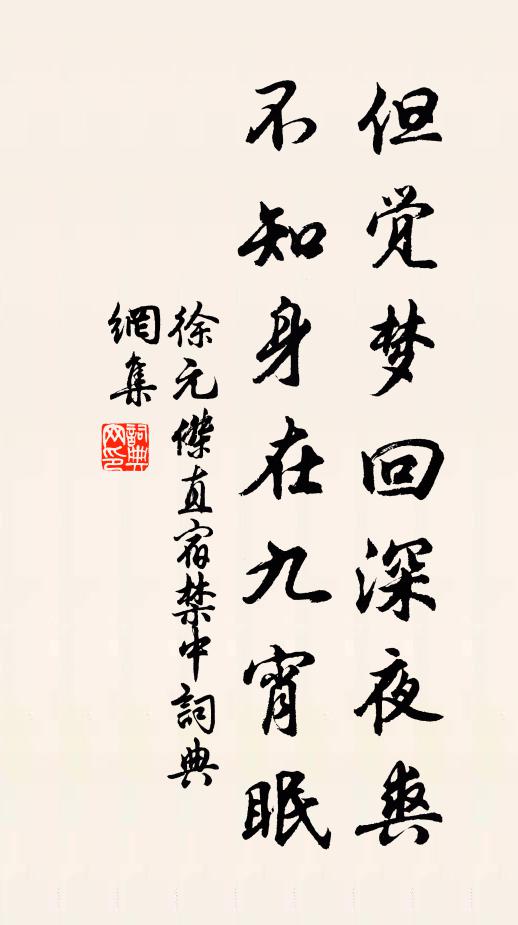 但觉梦回深夜爽
不知身在九宵眠
徐元傑直宿禁中詞典
網集
詞典
网印